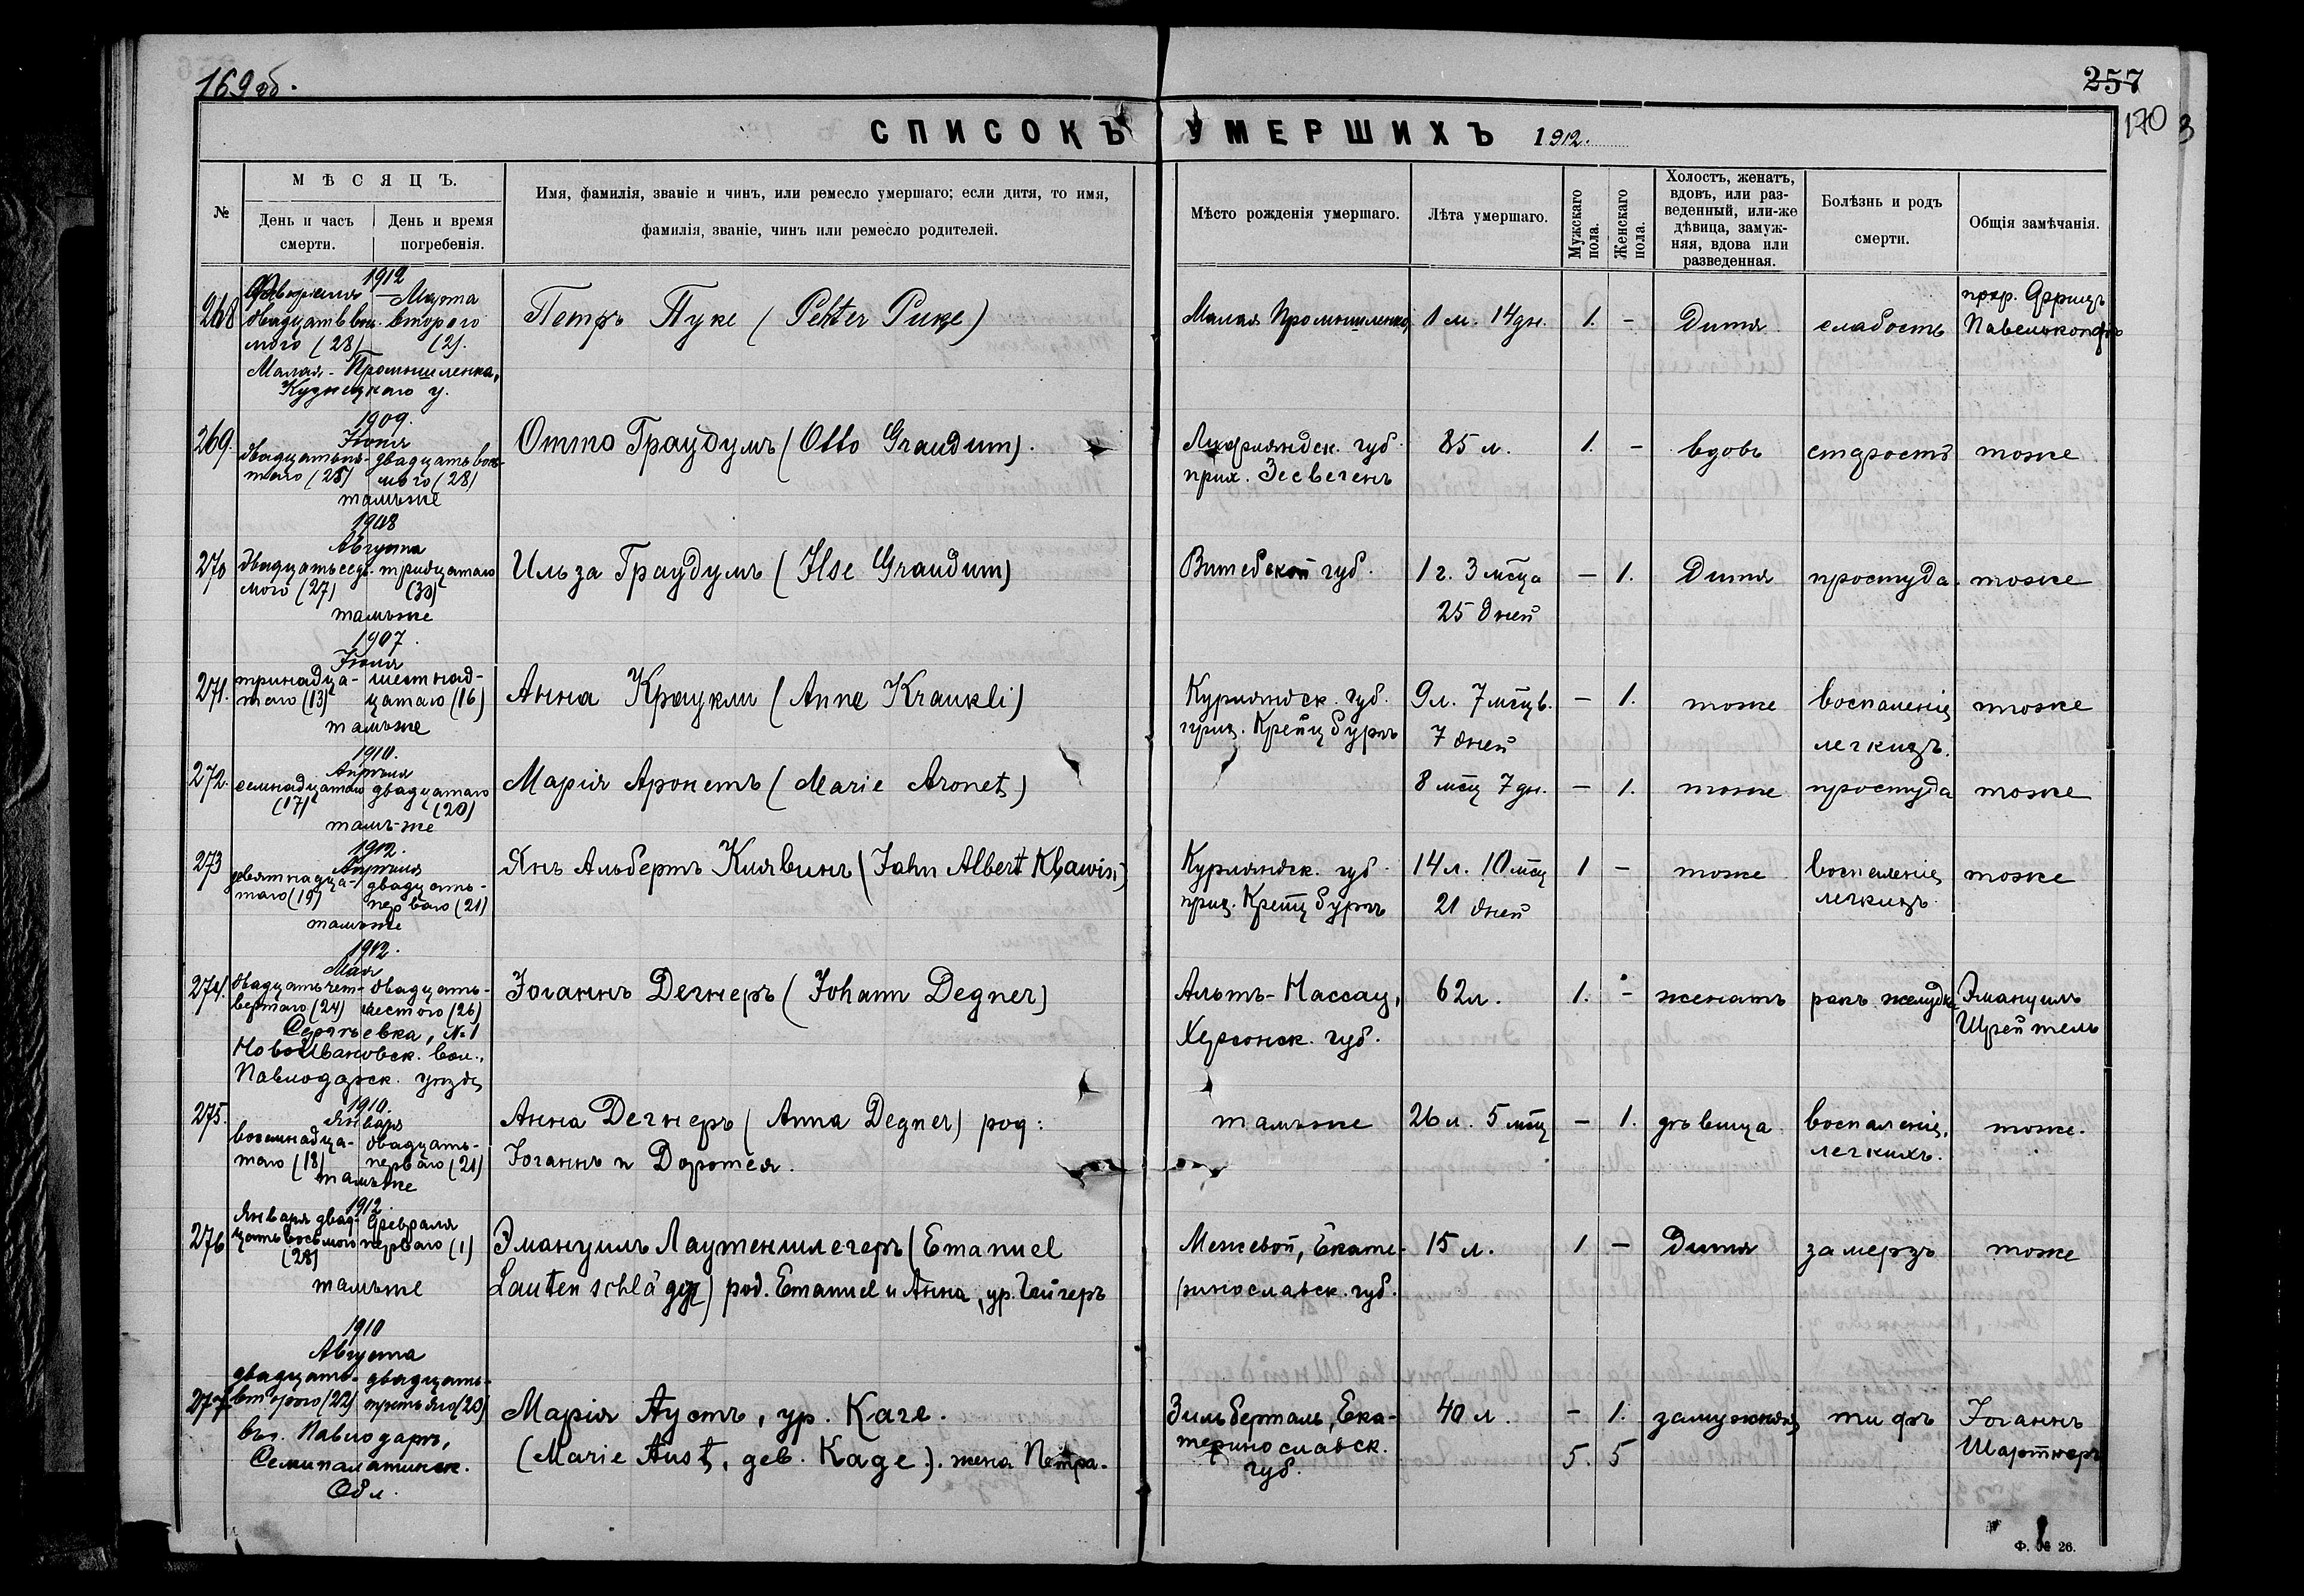 169об.
257
170
СПИСОКЪ УМЕРШИХЪ 1912.
№
МѢСЯЦЪ.
День и часъ смерти.
День и время погребенія.
Имя, фамилія, званіе и чинъ, или ремесло умершаго; если дитя, то имя,
фамилія, званіе, чинъ или ремесло родителей.
Мѣсто рожденія умершаго.
Лѣта умершаго.
Мужскаго пола.
Женскаго пола.
Холостъ, женатъ,
вдовъ, или раз-
веденный, или-же
дѣвица, замуж-
няя, вдова или
разведенная.
Болѣзнь и родъ
смерти.
Общія замѣчанія.
268
1912
Февраля — Марта
двадцать вось- второго
мого (28) (2).
Малая-Промышленка,
Кузнецкаго у.
Петръ Пуке (Pehter Puke)
Малая Промышленка
1 м. 14 дн.
1. –
Дитя
слабость
проф. Фрицъ
Павелькопфъ
269.
1909.
Іюня
двадцатьпя- двадцать вось-
таго (25) мого (28)
тамъже
Отто Граудумъ (Otto Graudum).
Лифляндск. губ.
прих. Зесвегенъ
85 л.
1. –
вдовъ
старость
тоже
270
1908
Августа
двадцатьседь- тридцатаго
мого (27) (30)
тамъже
Ильза Граудумъ (Ilse Graudum)
Витебской губ.
1 г. 3 мсца
25 дней
– 1.
Дитя
простуда
тоже
271.
1907.
Іюня
тринадца- шестнад-
таго (13) цатаго (16)
тамъже
Анна Краукли (Anna Kraukli)
Курляндск. губ.
прих. Крейцбургъ
9 л. 7 мсцв.
7 дней
– 1.
тоже
воспаленіе
легкихъ.
тоже
272.
1910.
Апрѣля
семнадцатаго двадцатаго
(17) (20)
тамъ-же
Марія Аронетъ (Marie Aronet)
8 мсц 7 дн.
– 1.
тоже
простуда
тоже
273
1912.
Апрѣля
девятнадца- двадцать-
таго (19) перваго (21)
тамъже
Янъ Альбертъ Клявинъ (Jahn Albert Klawin)
Курляндск. губ.
прих. Крейцбургъ
14 л. 10 мсц
21 дней
1 –
тоже
воспаленіе
легкихъ.
тоже
274.
1912.
Мая
двадцатьчет- двадцать-
вертаго (24) шестого (26)
Сергѣевка, №1
НовоИвановск. вол.,
Павлодарск. уѣзда
Іоганнъ Дегнеръ (Johann Degner)
Альтъ-Нассау,
Херсонск. губ.
62 л.
1. –
женатъ
ракъ желудка
Эмануилъ
Шрейтель
275.
1910.
Января
восемнадца- двадцать-
таго (18) перваго (21)
тамъже
Анна Дегнеръ (Anna Degner) род:
Іоганнъ и Доротея.
тамъже
26 л. 5 мсц
– 1.
дѣвица
воспаленіе
легкихъ.
тоже.
276
1912.
Января двад- Февраля
цатьвосьмого перваго (1)
(28)
тамъже
Эмануилъ Лаутеншлегеръ (Emanuel
Lautenschläger) род. Emanuel и Анна, ур. Гейгеръ
Межевой, Екате-
ринославск. губ.
15 л.
1 –
Дитя
замерзъ
тоже
277.
1910
Августа
двадцать- двадцать-
второго (22) третьяго (23)
въ г. Павлодаръ,
Семипалатинск.
Обл.
Марія Аустъ, ур. Каге.
(Marie Aust, geb. Kage). жена Петра.
Зильберталь, Ека-
теринославск.
губ.
40 л.
– 1.
замужняя
тифъ
Іоганнъ
Шартнеръ
5. 5
Ф. № 26.